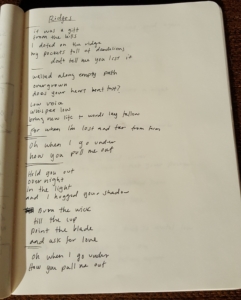 Bridges
it was a gift
from the hills
I dozed on the ridge
my pockets full of dandelions
don't tell me you lost it
walked along empty path
overgrown
does your heart beat too?
Low voice
whisper low
bring more life to words lay fallow
for when I'm lost and far from them
Oh when I go under
how you pull me out
Hold you out
over night
in the light
and I hugged your shadow
Burn the wick
till the cup
point the blade
and ask for love
Oh when I go under
How you pull me out